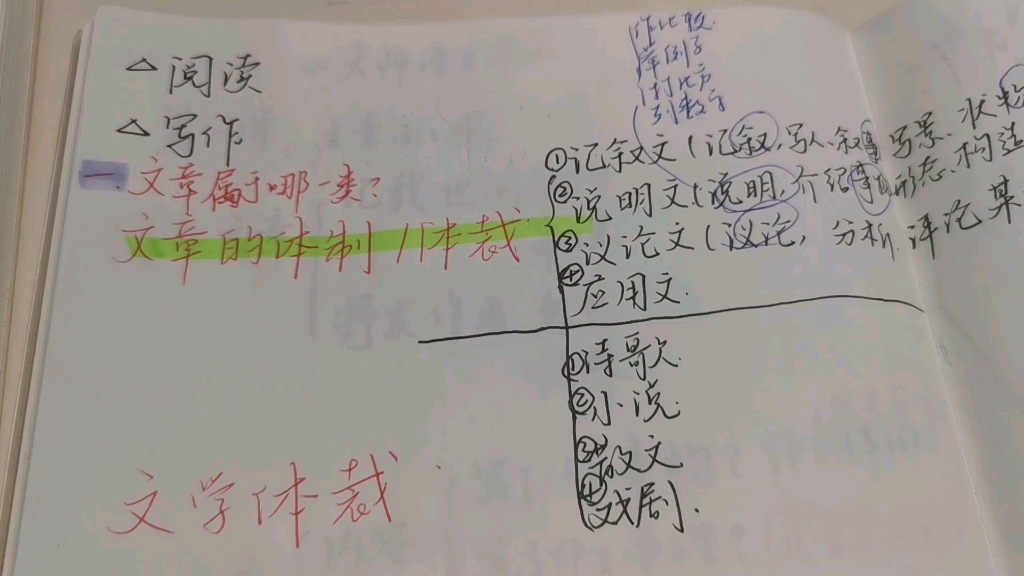 作比较
举例子
打比方
列数字
△阅读
△写作
一.文章属于哪一类?
文章的体制/体裁
①记叙文(记叙,写人、叙事、写景、状物
②说明文(说明,介绍事物形态、构造
③议论文(议论,分析、评论某
④应用文.
①诗歌.
②小说.
③散文
④戏剧.
文学体裁